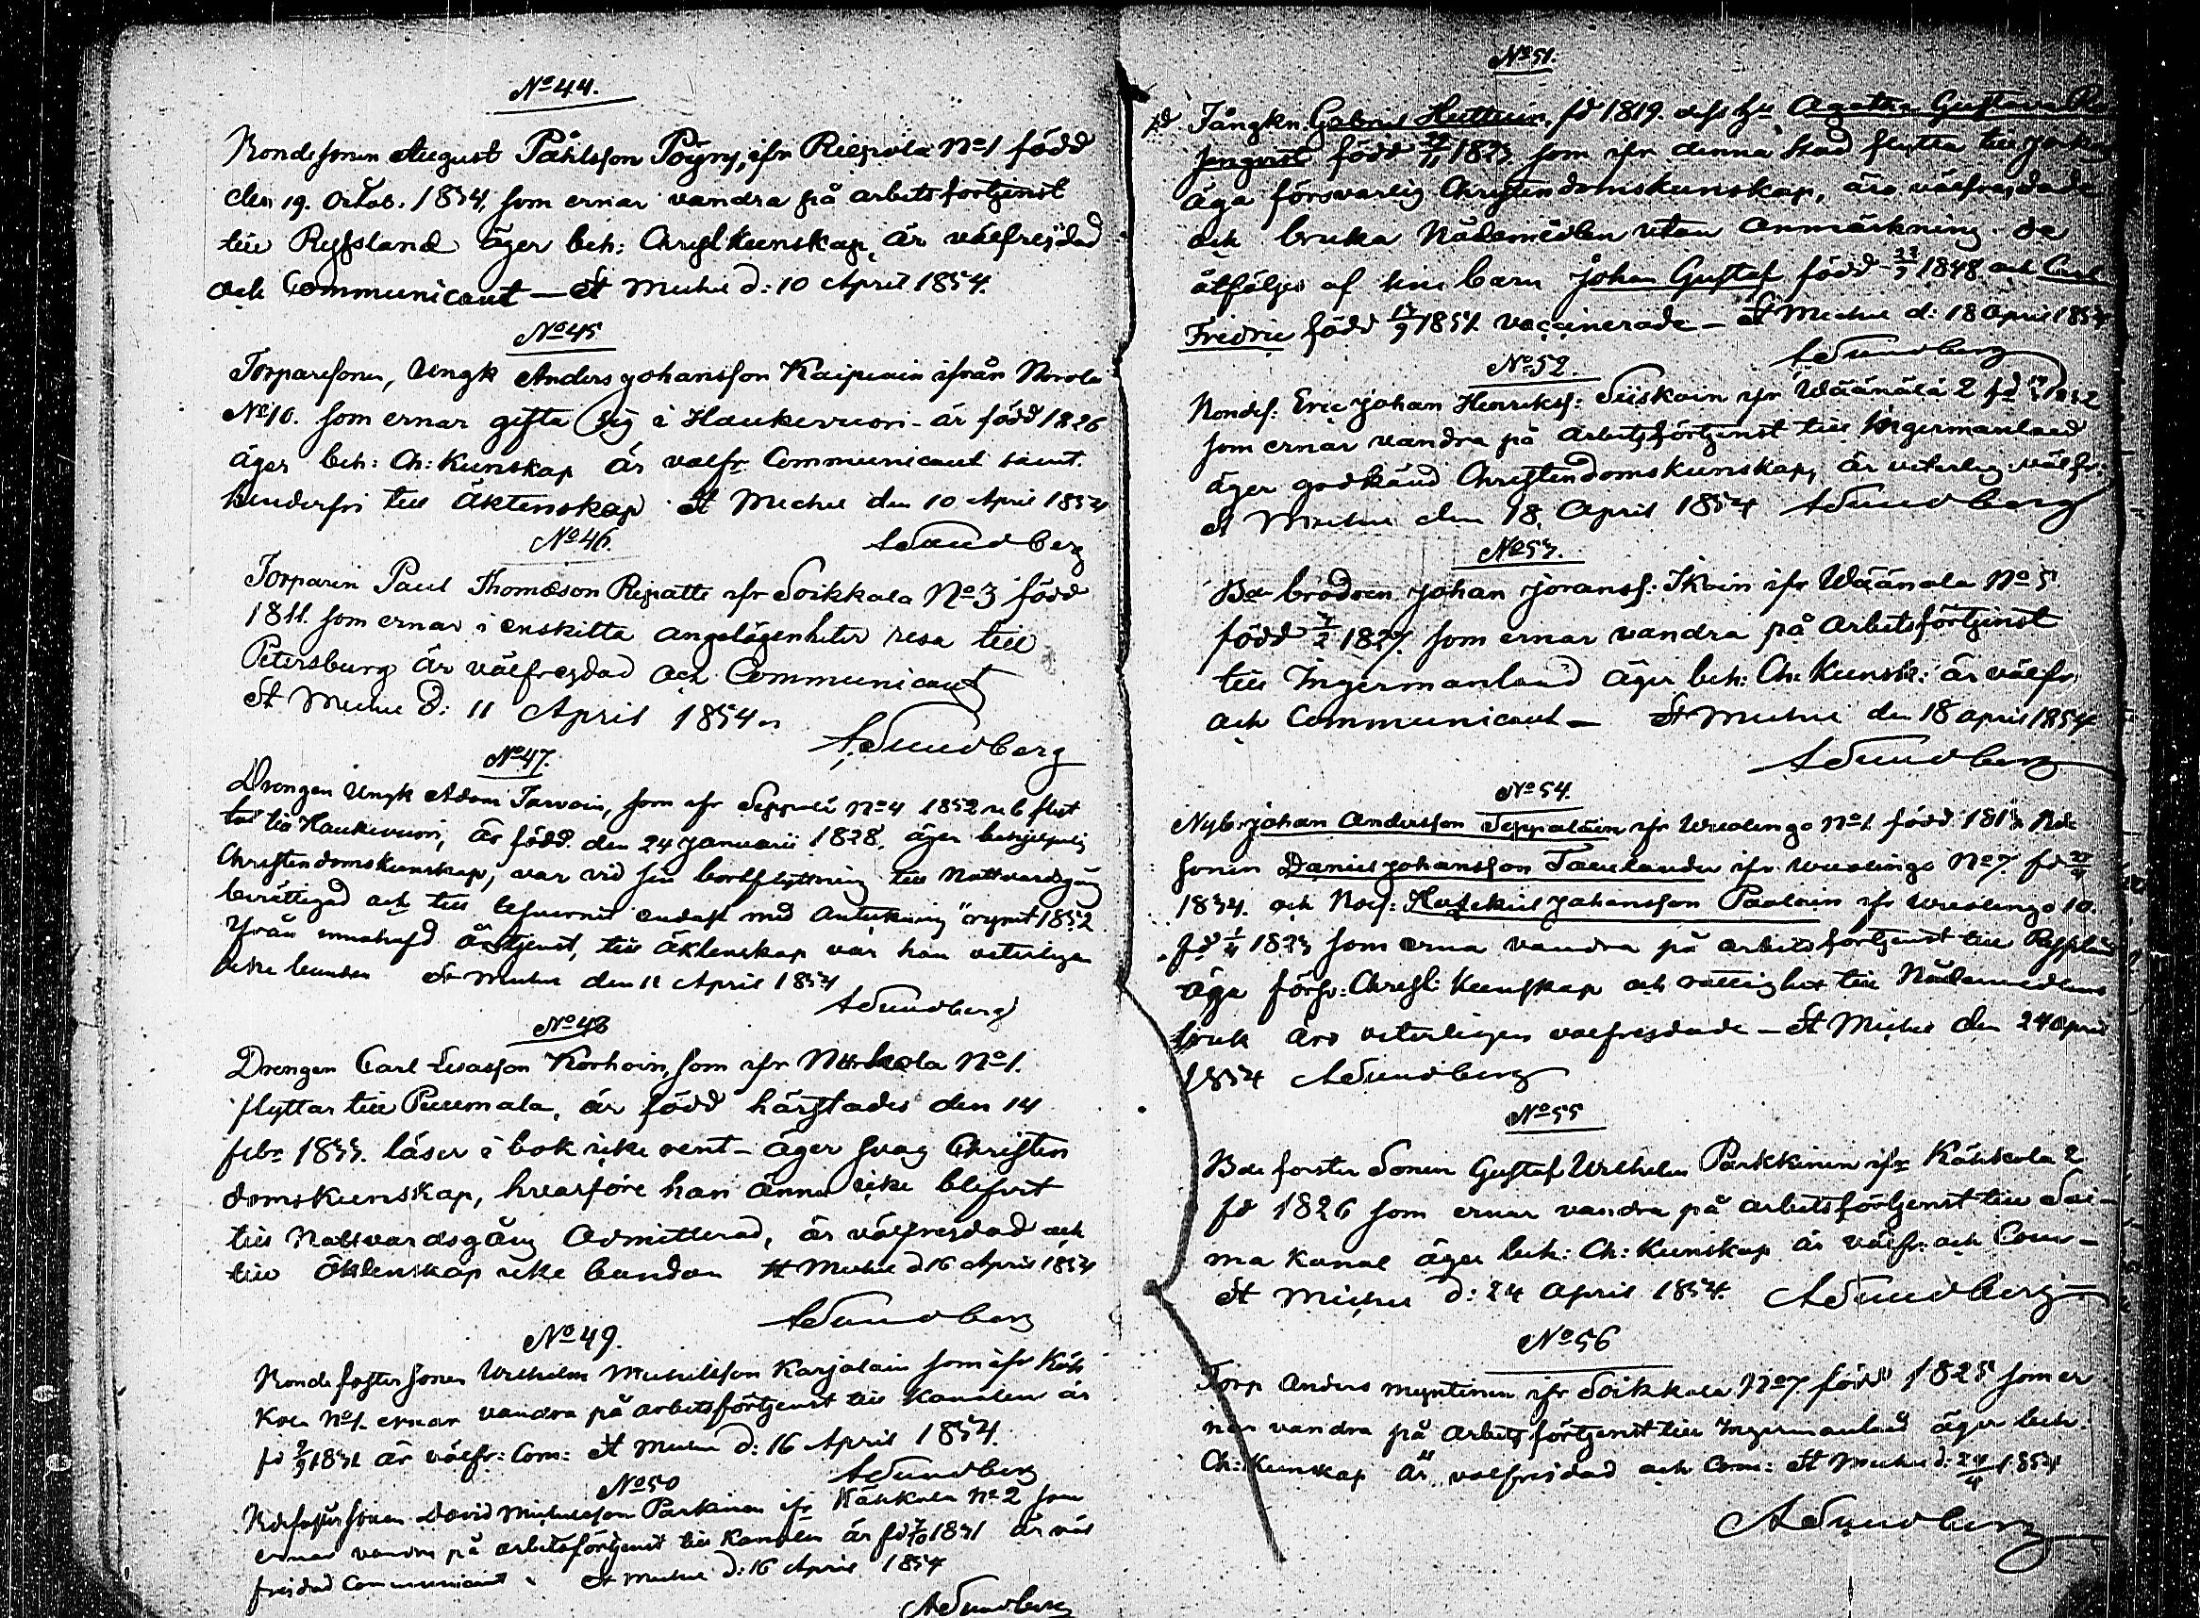 No 44.
Bondesonen August Påhlsson Pöyry, ifr Riepola No 1 född
den 19. Octob. 1834, som ernar vandra på arbetsförtjenst
till Ryssland äger beh: Christ. Kunskap, är välfrejdad
och Communicant — St Michel d: 10 April 1854.
No 45
Torparesonen, Ungk Anders Johansson Kaipiain ifrån Norola
No 10. som ernar gifta sig i Haukivuori - är född 1826
äger beh: Ch: Kunskap är välfr. Communicant samt
hinderfri till Äktenskap. St Michel den 10 April 1854
ASundberg
No 46.
Torparen Paul Thomasson Ripatti ifr Soikkala No 3 född
1811. som ernar i enskilta angelägenheter resa till
Petersburg är välfrejdad och Communicant
St Michel d: 11 April 1854
ASundberg
No 47.
Drengen Ungk Adam Tarvain, som ifr Seppälä No 4 1852 flyt
tat till Haukivuori, är född den 24 Januarii 1828, äger
Christendomskunskap, var vid sin bortflyttning till Nattvardsgång
berättigad och till lefvernet endast med Anteckning 1852
ifrån årstjenst, till äktenskap var han veterligen
icke bunden St Michel den 11 April 1854
ASundberg
No 48
Drengen Carl Esaasson Korhoin, som ifr Norhola No 1.
flyttar till Puumala, är född härstädes den 14
febr 1833. läser i bok icke rent - äger svag Christen
domskunskap, hvarföre han ännu icke blifvit
till Nattvardsgång Admitterad, är välfrejdad och
till Äktenskap icke bunden St Michel d 16 April 1854
ASundberg
No 49.
Bondefostersonen Wilhelm Michelsson Karjalain som ifr Käh
kola No 1. ernar vandra på arbetsförtjenst till Kanalen är
fd 1831 är välfr: Com: St Michel d: 16 April 1854.
ASundberg
No 50
David Michelsson Parkinen ifr Kähkola No 2 som
ernar vandra på arbetsförtjenst till Kanalen är fd 1831 är väl
frejdad Communicant St Michel d: 16 April 1854
ASundberg
No 51.
Gabriel Huttuin, fd 1819. dess hu Agatha Gustava
född 1823 som ifr denna Stad flytta till
äga försvarlig Christendomskunskap, äro välfrejdade
och bruka Nådemedlen utan Anmärkning. de
åtföljes af sine barn Johan Gustaf född 1848 och Carl
Fredric född 1851 vaccinerade — St Michel d: 18 April 1854
ASundberg
No 52.
Bondes: Eric Johan Henrikss: Siiskoin ifr Wäänälä 2 fd 1832
som ernar vandra på arbetsförtjenst till Ingermanland
äger godkänd Christendomskunskap, är veterlig välfr:
St Michel den 18 April 1854 ASundberg
No 53.
Bde brodren Johan Joranss: Ikoin ifr Wäänala No 5
född 7/2 1827. som ernar vandra på Arbetsförtjenst
till Ingermanland äger beh: Ch: Kunsk: är välfr.
och Communicant — St Michel den 18 April 1854
ASundberg
No 54.
Nybr Johan Andersson Seppäläin ifr Wuolingo No 1. född Bde
sonen Daniel Johansson Taulander ifr Wuolingo No 7. fd
1834. och Johansson Paalain ifr Wuolingo 10.
fd 1823 som erna vandra på arbetsförtjenst till Ryssland
äga försv: Christl: Kunskap och rättighet till Nådemedlens
bruk äro veterligen välfrejdade — St Michel den 24 April
1854 ASundberg
No 55
Bde foster Sonen Gustaf Wilhelm Parkkinen ifr Kähkola 2
fd 1826 som ernar vandra på arbetsförtjenst till Sai-
ma Kanal äger beh: Ch: Kunskap är välfr: och Com —
St Michel d: 24 April 1854. ASundberg
No 56
Torp Anders Myntinen ifr Soikkala No 7 född 1825 som er
nar vandra på Arbetsförtjenst till Ingermanland äger beh.
Ch: Kunskap är välfrejdad och Com: St Michel d: 24/4 1854
ASundberg